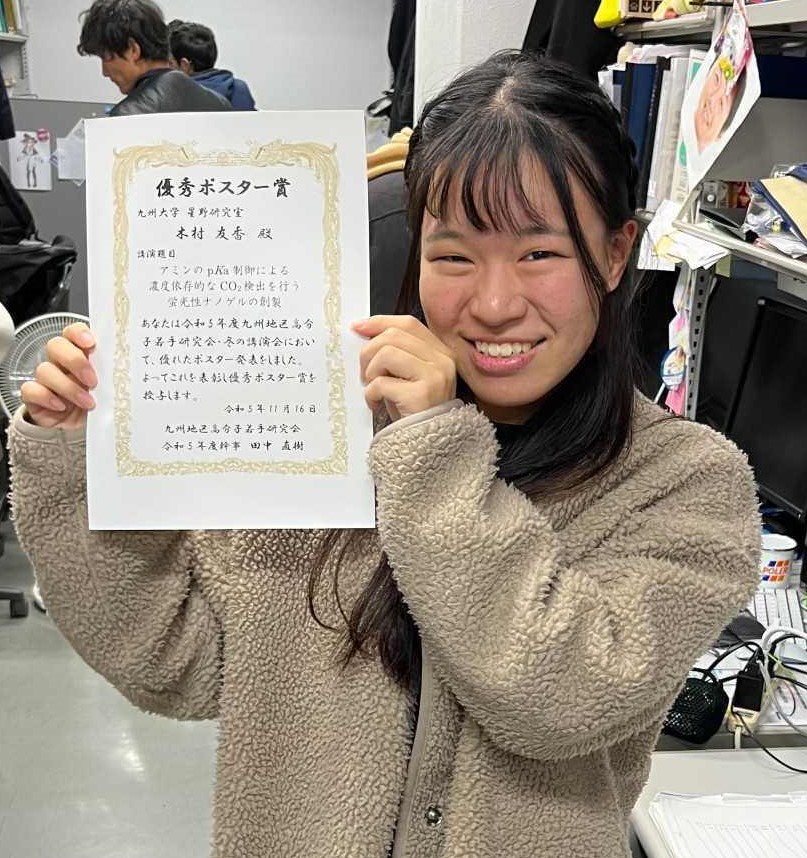 優秀ポスター賞
九州大学 星野研究室
木村 友香 殿
講演題目
アミンの pKa 制御による
濃度依存的な CO₂ 検出を行う
蛍光性ナノゲルの創製
あなたは令和5年度九州地区高分
子若手研究会・冬の講演会におい
て、優れたポスター発表をしました。
よってこれを表彰し優秀ポスター賞を
授与します。
令和5年11月16日
九州地区高分子若手研究会
令和5年度幹事 田中 直樹